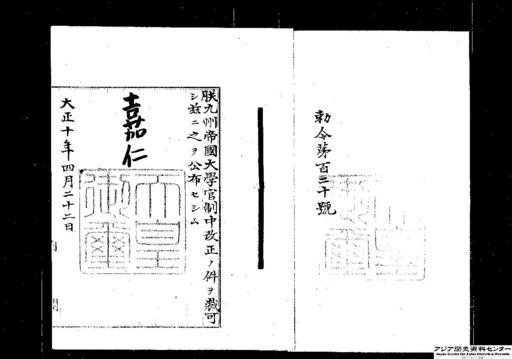 勅令第百三十號
朕九州帝國大學官制中改正ノ件ヲ裁可
シ茲ニ之ヲ公布セシム
嘉仁
天皇
御璽
大正十年四月二十二日
アジア歴史資料センター
Japan Center for Asian Historical Records